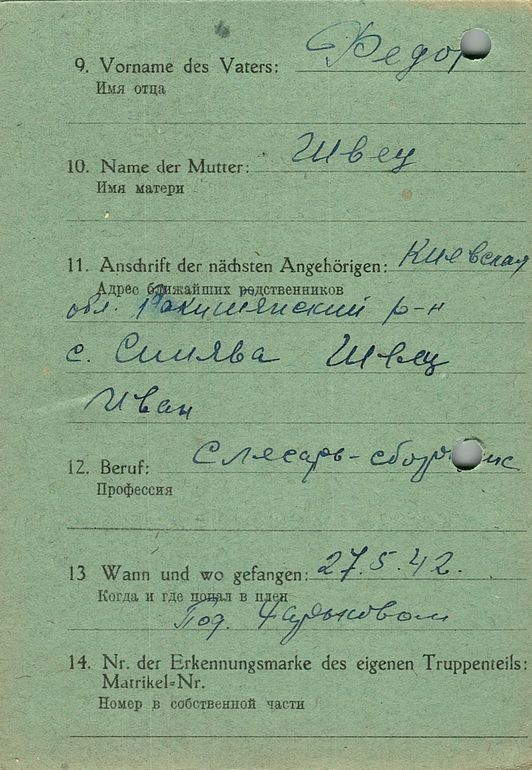 9. Vorname des Vaters: Федор
Имя отца
10. Name der Mutter: Швец
Имя матери
11. Anschrift der nächsten Angehörigen: Киевская
Адрес ближайших родственников
обл. Ракитянский р-н
с. Синява Швец
Иван
12. Beruf: Слесарь-сборщик
Профессия
13 Wann und wo gefangen: 27.5.42.
Когда и где попал в плен
Под. Харьковом
14. Nr. der Erkennungsmarke des eigenen Truppenteils:
Matrikel-Nr.
Номер в собственной части